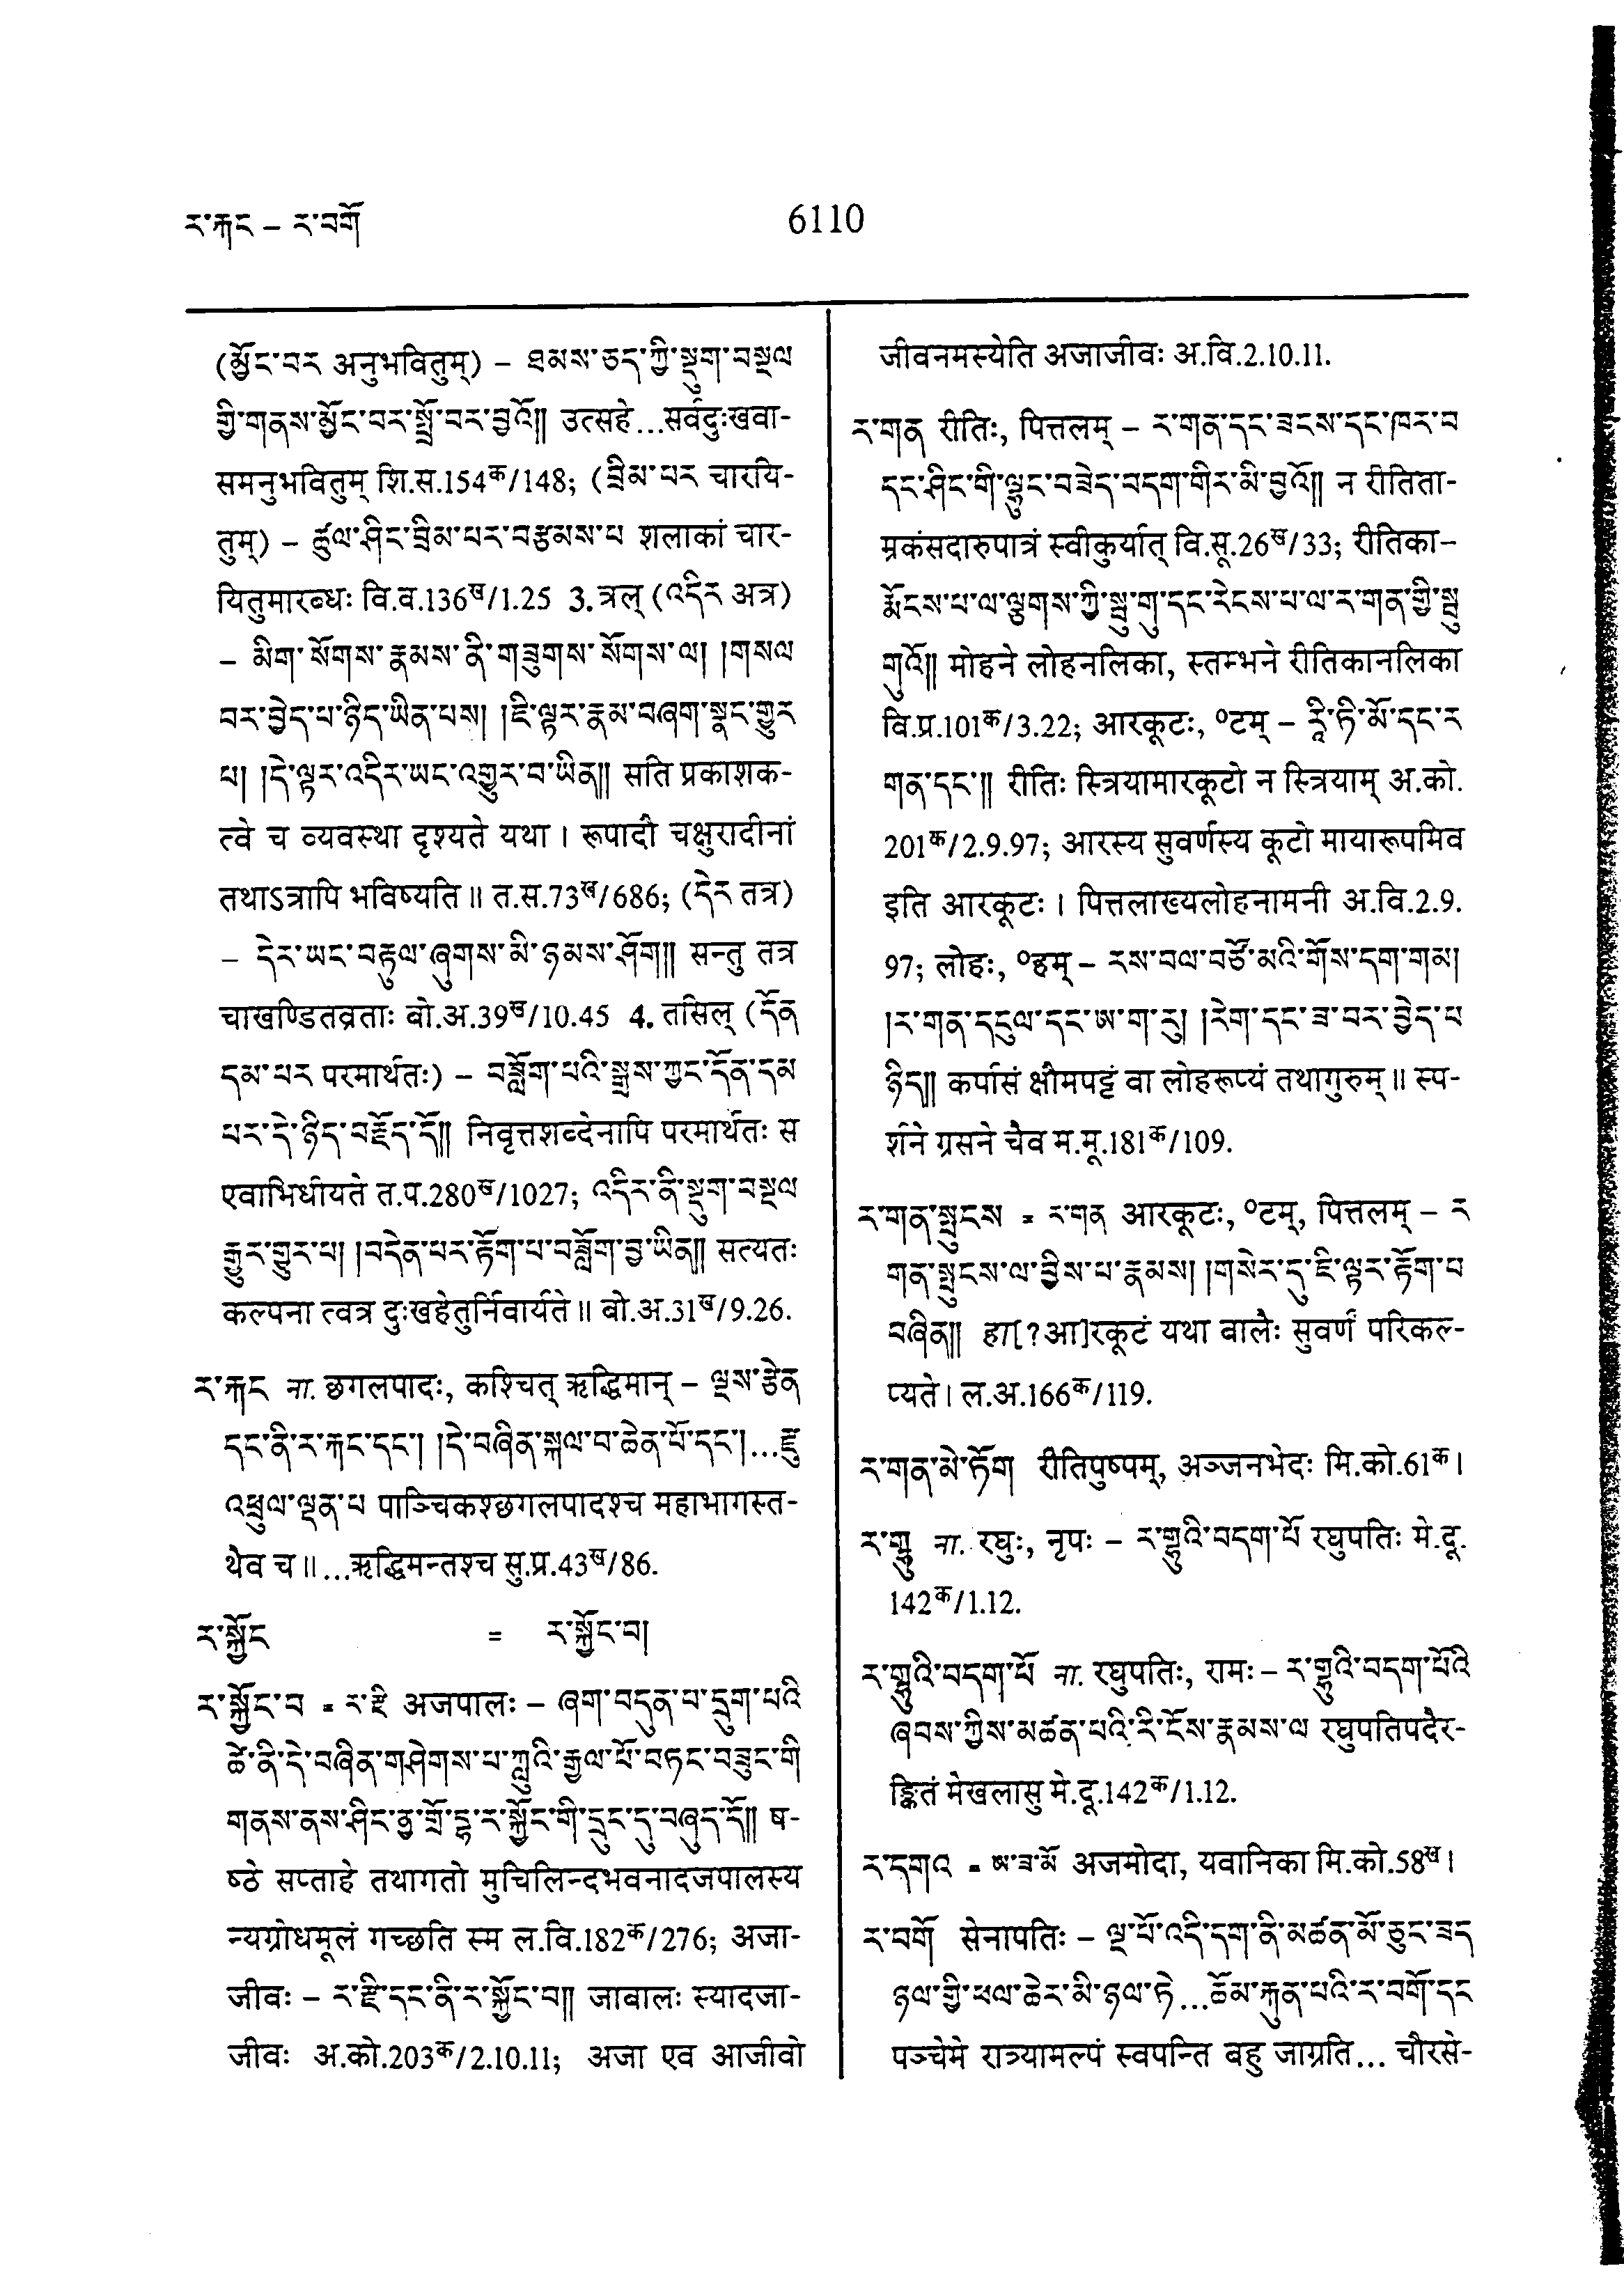 ར་རྐང – ར་བགོ
6110
(མྱོང་བར अनुभवितुम्) – ཐམས་ཅད་ཀྱི་སྡུག་བསྔལ
གྱི་གནས་མྱོང་བར་སྤྲོ་བར་བྱའོ༎ उत्सहे...सर्वदुःखवा-
समनुभवितुम् शि.स.154क/148; (བྲིམ་པར चारयि-
तुम्) – ཚུལ་ཤིང་བྲིམ་པར་བརྩམས་པ शलाकां चार-
यितुमारब्धः वि.व.136ख/1.25 3. त्रल् (འདིར अत्र)
– མིག་སོགས་རྣམས་ནི་གཟུགས་སོགས་ལ། །གསལ
བར་བྱེད་པ་ཉིད་ཡིན་པས། །ཇི་ལྟར་རྣམ་བཞག་སྣང་གྱུར
པ། །དེ་ལྟར་འདིར་ཡང་འགྱུར་བ་ཡིན༎ सति प्रकाशक-
त्वे च व्यवस्था दृश्यते यथा । रूपादौ चक्षुरादीनां
तथाऽत्रापि भविष्यति ॥ त.स.73ख/686; (དེར तत्र)
– དེར་ཡང་བརྟུལ་ཞུགས་མི་ཉམས་ཤོག༎ सन्तु तत्र
चाखण्डितव्रताः बो.अ.39ख/10.45 4. तसिल् (དོན
དམ་པར परमार्थतः) – བཟློག་པའི་སྒྲས་ཀྱང་དོན་དམ
པར་དེ་ཉིད་བརྗོད་དོ༎ निवृत्तशब्देनापि परमार्थतः स
एवाभिधीयते त.प.280ख/1027; འདིར་ནི་སྡུག་བསྔལ
རྒྱུར་གྱུར་པ། །བདེན་པར་རྟོག་པ་བཟློག་བྱ་ཡིན༎ सत्यतः
कल्पना त्वत्र दुःखहेतुर्निवार्यते ॥ बो.अ.31ख/9.26.
ར་རྐང ना. छगलपादः, कश्चित् ऋद्धिमान् – ལྔས་རྩེན
དང་ནི་ར་རྐང་དང་། །དེ་བཞིན་སྐལ་བ་ཆེན་པོ་དང་།...རྫུ
འཕྲུལ་ལྡན་པ पाञ्चिकश्छगलपादश्च महाभागस्त-
थैव च ॥...ऋद्धिमन्तश्च सु.प्र.43ख/86.
ར་སྐྱོང = ར་སྐྱོང་བ།
ར་སྐྱོང་བ = ར་རྫི अजपालः – ཞག་བདུན་པ་དྲུག་པའི
ཚེ་ནི་དེ་བཞིན་གཤེགས་པ་ཀླུའི་རྒྱལ་པོ་བཏང་བཟུང་གི
གནས་ནས་ཤིང་ནྱ་གྲོ་དྷ་ར་སྐྱོང་གི་དྲུང་དུ་བཞུད་དོ༎ ष-
ष्ठे सप्ताहे तथागतो मुचिलिन्दभवनादजपालस्य
न्यग्रोधमूलं गच्छति स्म ल.वि.182क/276; अजा-
जीवः – ར་རྫི་དང་ནི་ར་སྐྱོང་བ༎ जावालः स्यादजा-
जीवः अ.को.203क/2.10.11; अजा एव आजीवो
जीवनमस्येति अजाजीवः अ.वि.2.10.11.
ར་གན रीतिः, पित्तलम् – ར་གན་དང་ཟངས་དང་ཁར་བ
དང་ཤིང་གི་ལྷུང་བཟེད་བདག་གིར་མི་བྱའོ༎ न रीतिता-
म्रकंसदारुपात्रं स्वीकुर्यात् वि.सू.26ख/33; रीतिका–
རྨོངས་པ་ལ་ལྕགས་ཀྱི་སྦུ་གུ་དང་རེངས་པ་ལ་ར་གན་གྱི་སྦུ
གུའོ༎ मोहने लोहनलिका, स्तम्भने रीतिकानलिका
वि.प्र.101क/3.22; आरकूटः, ०टम् – རཱི་ཏི་མོ་དང་ར
གན་དང་༎ रीतिः स्त्रियामारकूटो न स्त्रियाम् अ.को.
201क/2.9.97; आरस्य सुवर्णस्य कूटो मायारूपमिव
इति आरकूटः । पित्तलाख्यलोहनामनी अ.वि.2.9.
97; लोहः, ०हम् – རས་བལ་བཙོ་མའི་གོས་དག་གམ།
།ར་གན་དངུལ་དང་ཨ་ག་རུ། །རེག་དང་ཟ་བར་བྱེད་པ
ཉིད༎ कर्पासं क्षौमपट्टं वा लोहरूप्यं तथागुरुम् ॥ स्प-
र्शने ग्रसने चैव म.मू.181क/109.
ར་གན་སྦྱངས = ར་གན आरकूटः, ०टम्, पित्तलम् – ར
གན་སྦྱངས་ལ་བྱིས་པ་རྣམས། །གསེར་དུ་ཇི་ལྟར་རྟོག་པ
བཞིན༎ हा[?आ]रकूटं यथा वालैः सुवर्णं परिकल्-
प्यते । ल.अ.166क/119.
ར་གན་མེ་ཏོག रीतिपुष्पम्, अञ्जनभेदः मि.को.61क ।
ར་གྷུ ना. रघुः, नृपः – ར་གྷུའི་བདག་པོ रघुपतिः मे.दू.
142क/1.12.
ར་གྷུའི་བདག་པོ ना. रघुपतिः, रामः – ར་གྷུའི་བདག་པོའི
ཞབས་ཀྱིས་མཚན་པའི་རི་ངོས་རྣམས་ལ रघुपतिपदैर-
ङ्कितं मेखलासु मे.दू.142क/1.12.
ར་དགའ = ཨ་ཟ་མོ अजमोदा, यवानिका मि.को.58ख ।
ར་བགོ सेनापतिः – ལྔ་པོ་འདི་དག་ནི་མཚན་མོ་ཅུང་ཟད
ཉལ་གྱི་ཕལ་ཆེར་མི་ཉལ་ཏེ...ཆོམ་རྐུན་པའི་ར་བགོ་དང
पञ्चेमे रात्र्यामल्पं स्वपन्ति बहु जाग्रति... चौरसे-